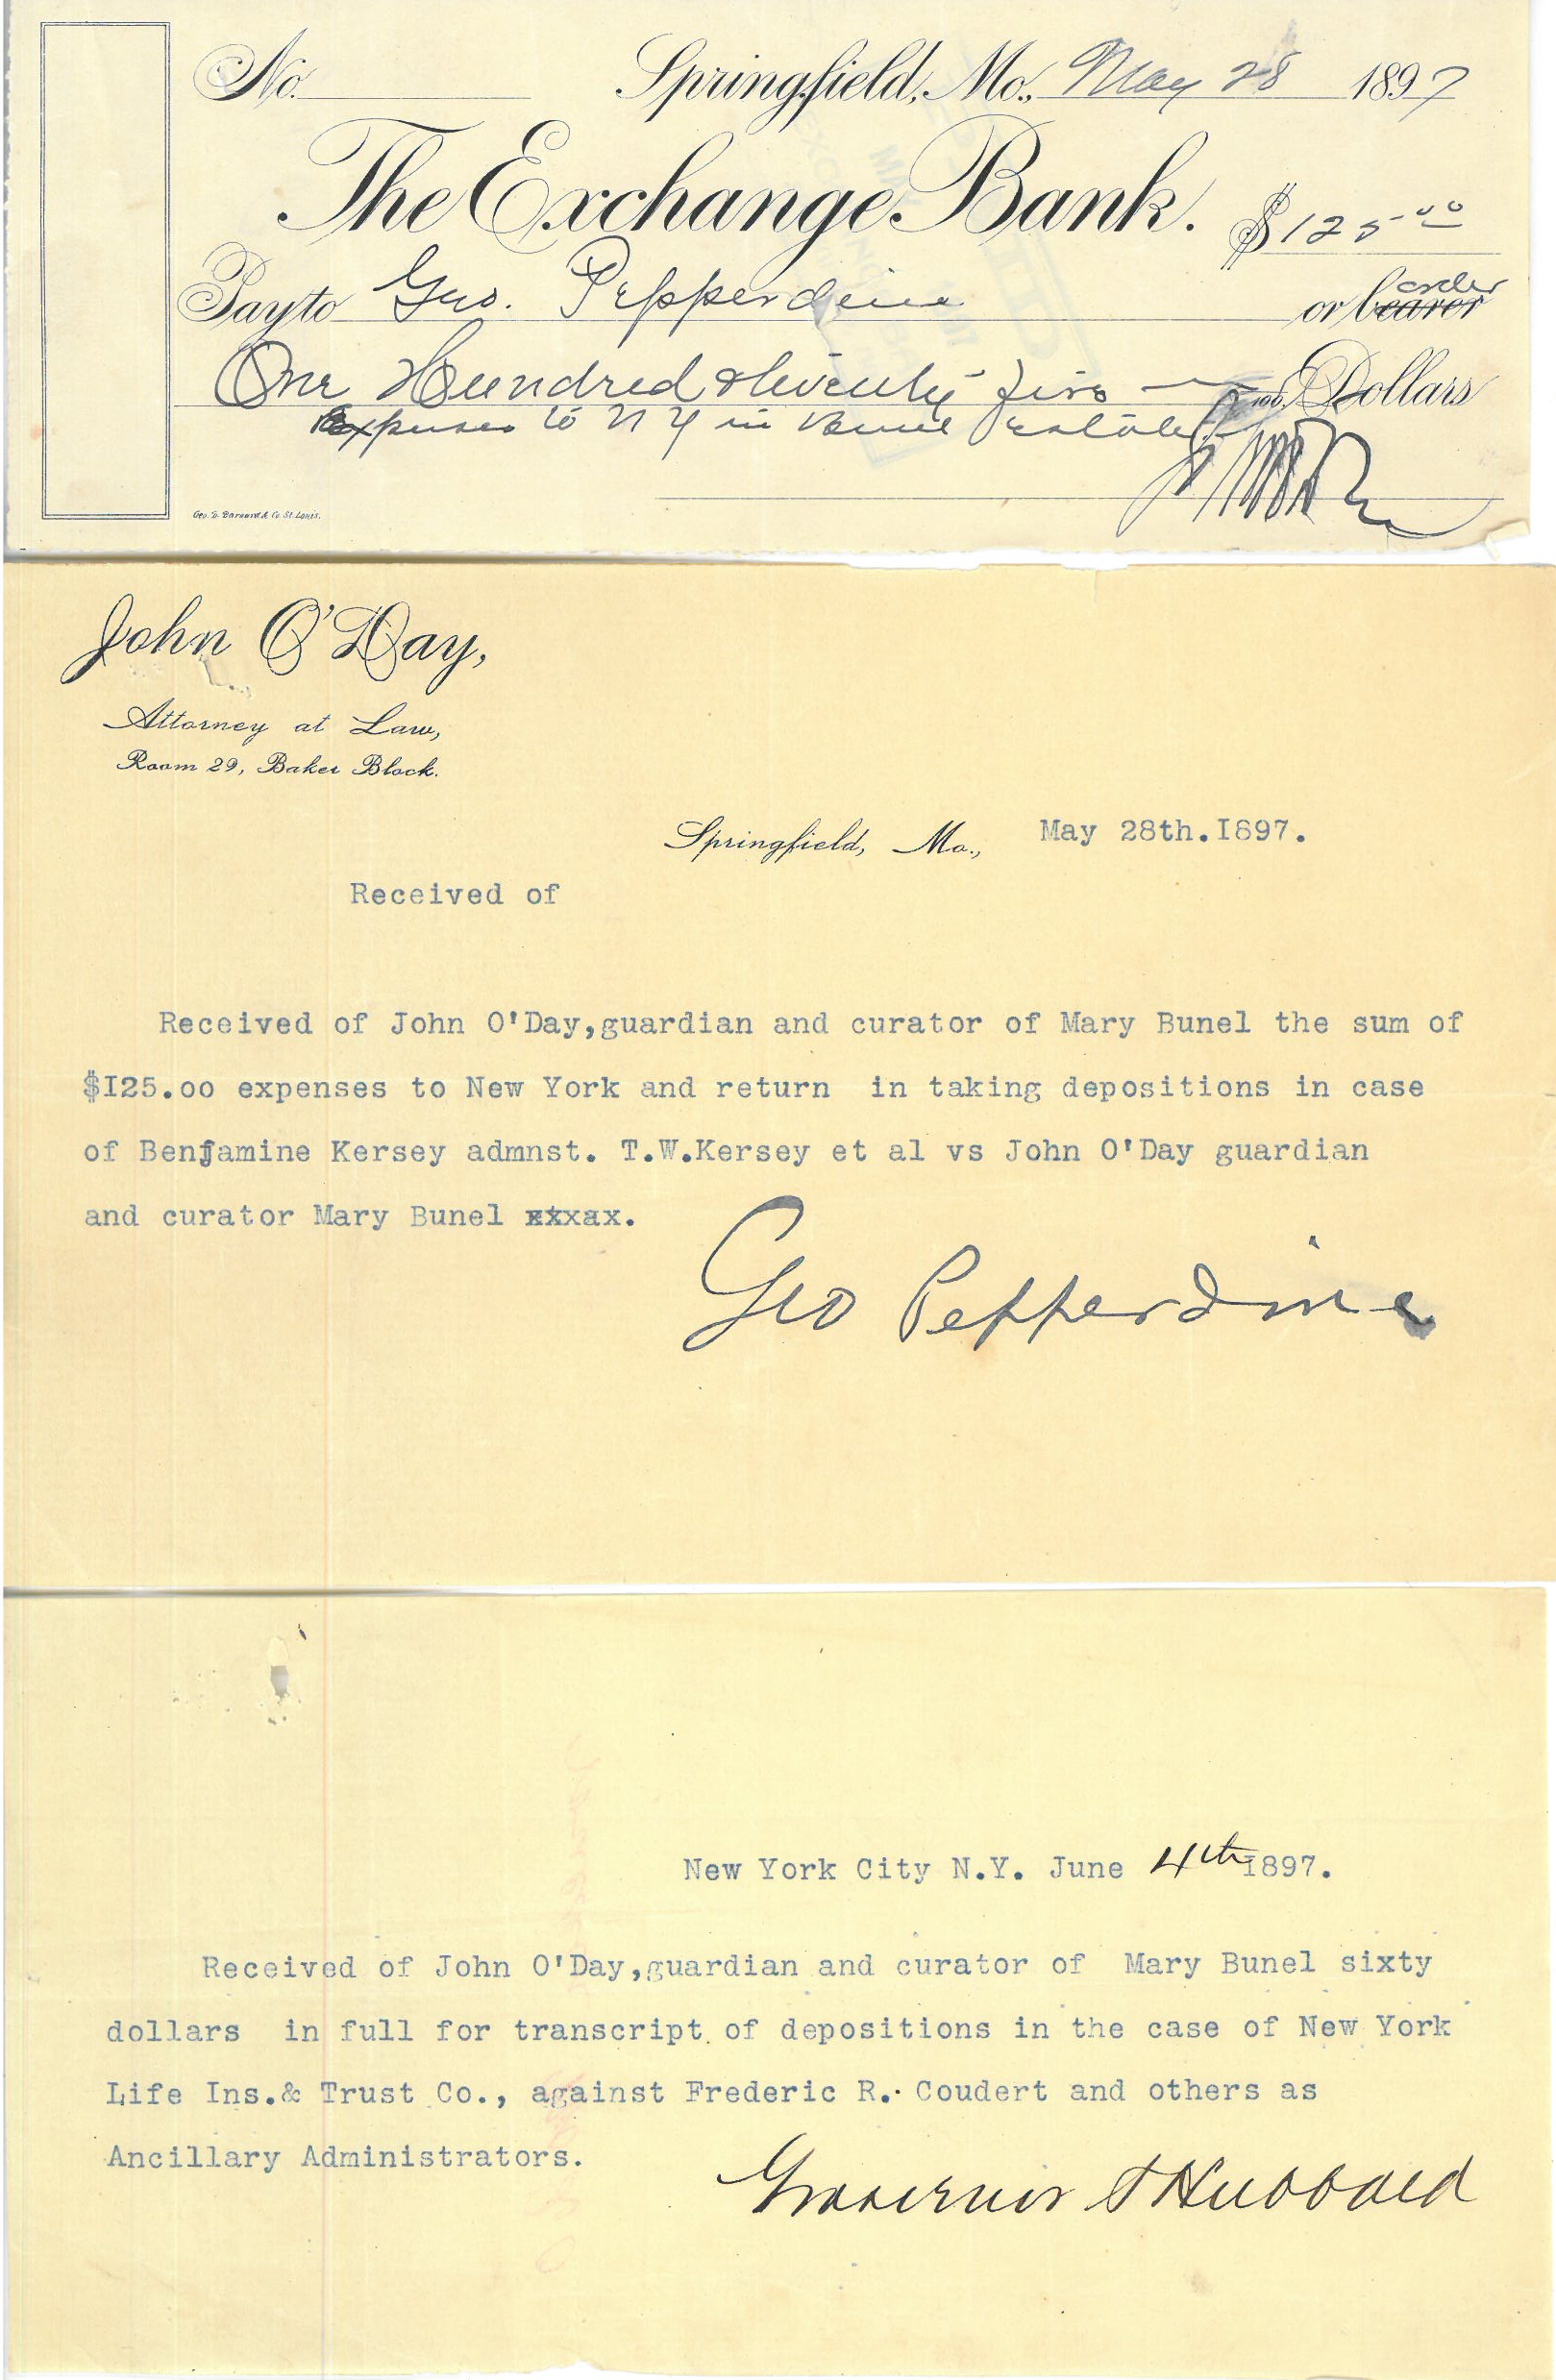 No. Springfield, Mo., May 28 1897
The Exchange Bank. $125.00
Pay to Geo. Pepperdine or bearer order
One Hundred & twenty five — 100 Dollars
Expenses to N Y in Bunel estate
Geo. D. Barnard & Co. St. Louis.
John O'Day,
Attorney at Law,
Room 29, Baker Block.
Springfield, Mo., May 28th.I897.
Received of
Received of John O'Day,guardian and curator of Mary Bunel the sum of
$I25.oo expenses to New York and return in taking depositions in case
of Benjamine Kersey admnst. T.W.Kersey et al vs John O'Day guardian
and curator Mary Bunel xxxax.
Geo Pepperdine
New York City N.Y. June 4th I897.
Received of John O'Day,guardian and curator of Mary Bunel sixty
dollars in full for transcript of depositions in the case of New York
Life Ins.& Trust Co., against Frederic R. Coudert and others as
Ancillary Administrators.
Governor S Hubbard